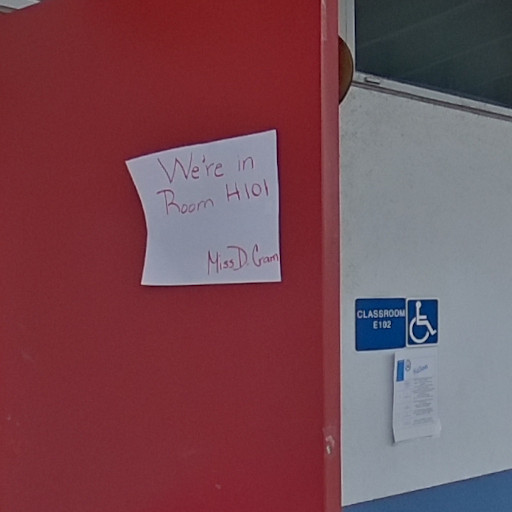 We're in
Room H101
Miss D. Gram
CLASSROOM
E102